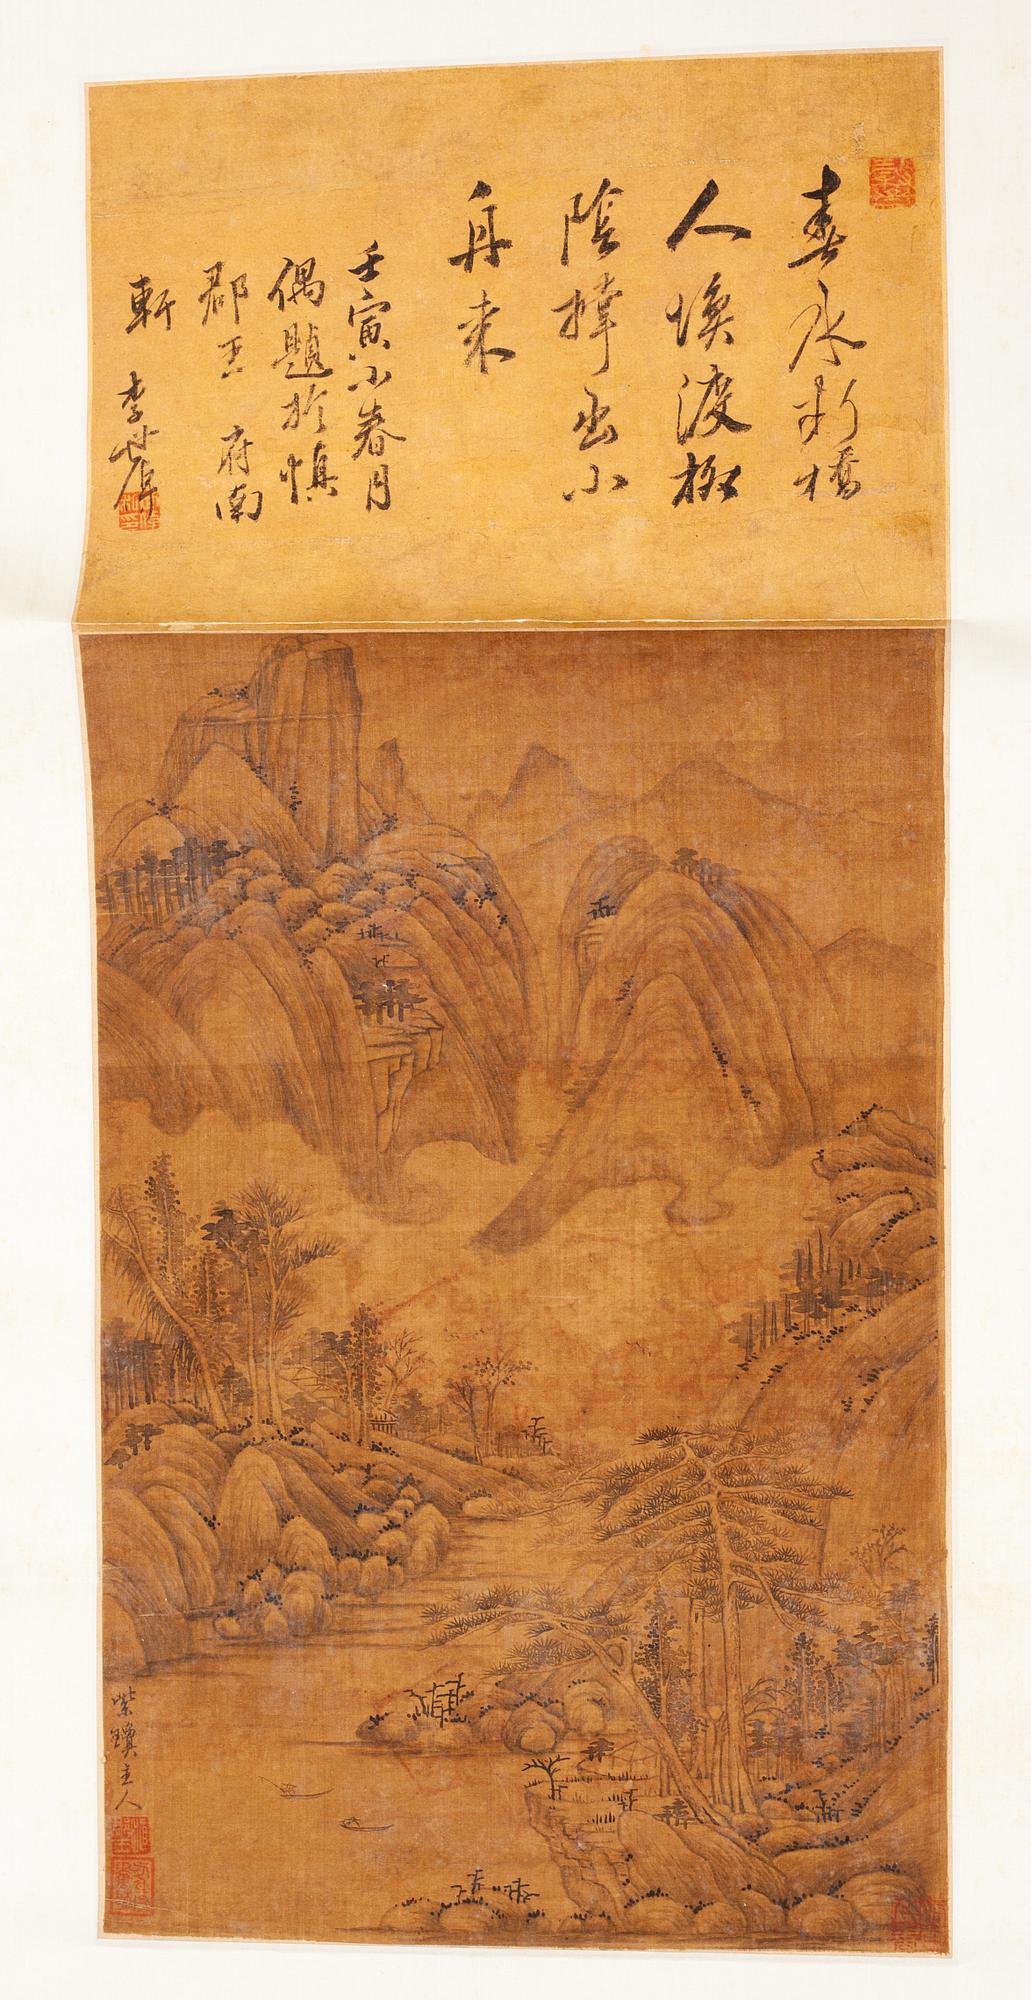 春水断橋
人喚渡柳
陰撑出小
舟来
壬寅小春月
偶題於慎
郡王 府南
軒 李世倬
紫瓊主人